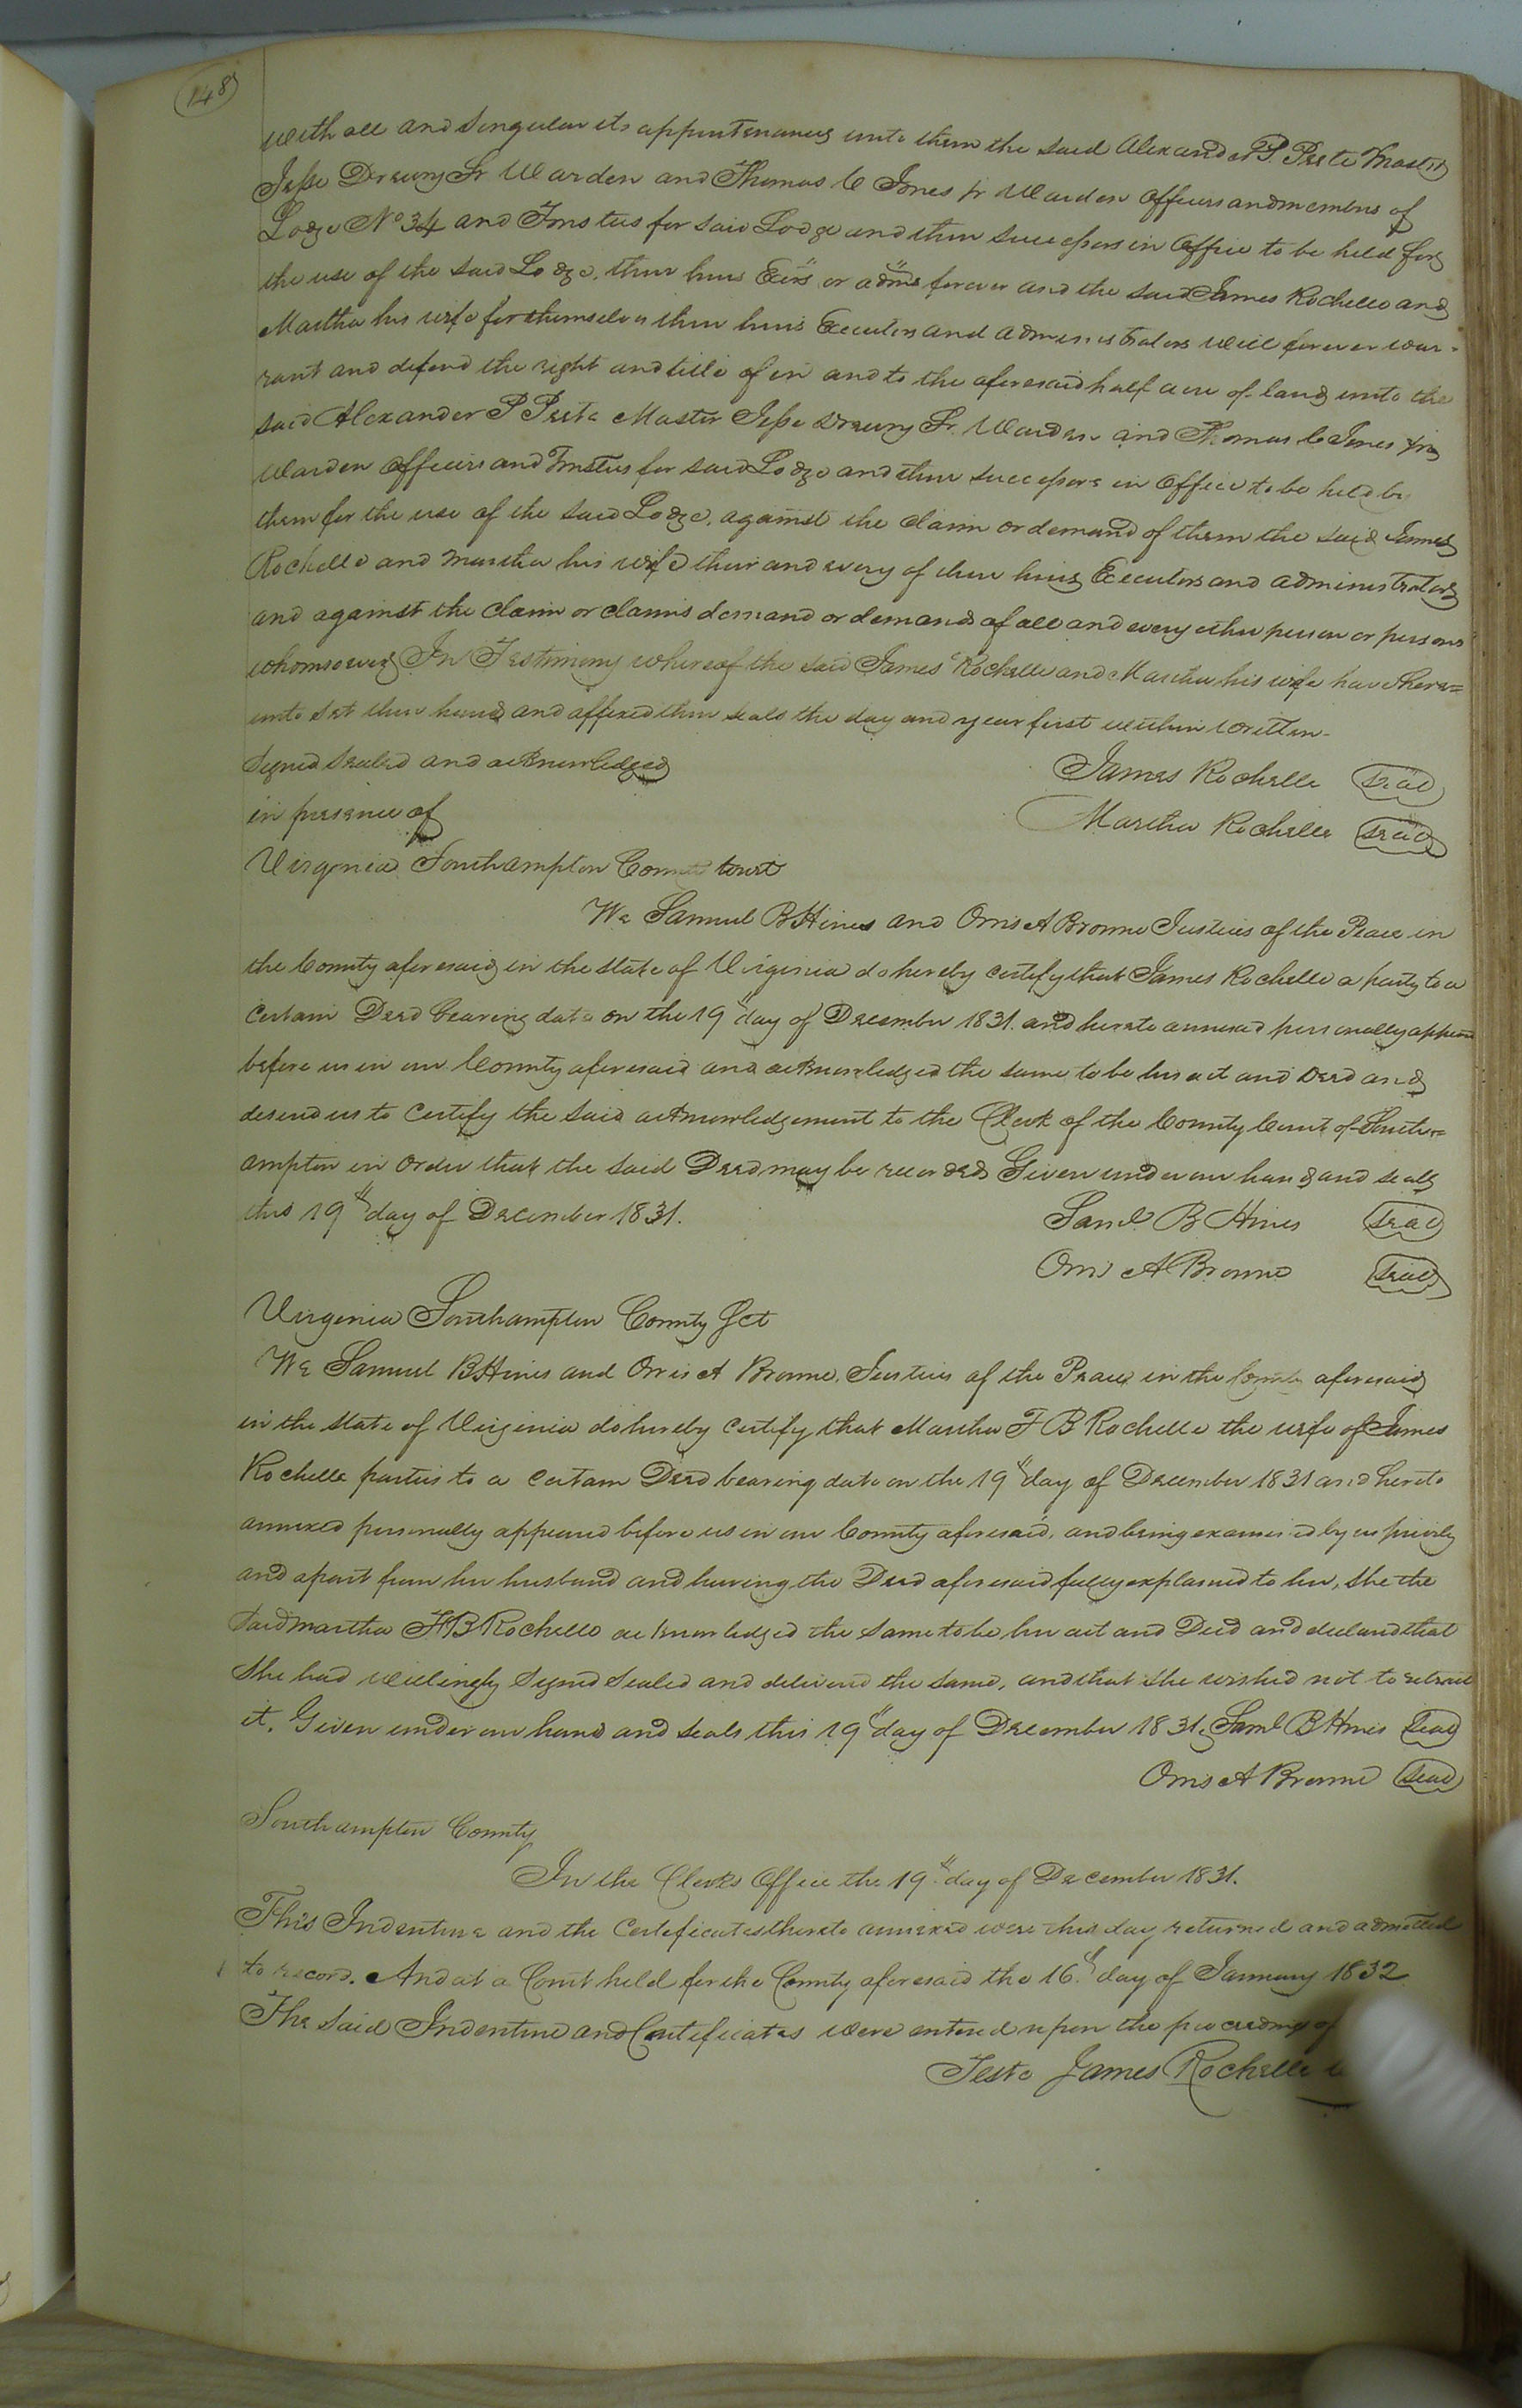 148
with all and singular its appurtenances unto them the said Alexander P. Peete Master
Jesse Drewry Sr Warden and Thomas C Jones jr Warden officers and members of
Lodge No 34 and Trustees for said Lodge and their successors in Office to be held for
the use of the said Lodge, their heirs Exrs or adms forever and the said James Rochelle and
Martha his wife for themselves their heirs Executors and administrators will forever war-
rant and defend the right and title of in and to the aforesaid half acre of land unto the
said Alexander P Peete Master Jesse Drewry Sr. Warden and Thomas C Jones jr
Warden officers and Trustees for said Lodge and their successors in Office to be held by
them for the use of the said Lodge, against the claim or demand of them the said James
Rochelle and Martha his wife their and every of their heirs Executors and administrators
and against the claim or claims demand or demands of all and every other person or persons
whomsoever In Testimony whereof the said James Rochelle and Martha his wife have here=
unto set their hands and affixed their seals the day and year first within written-
Signed Sealed and acknowledged
James Rochelle seal
in presence of
Martha Rochelle seal
Virginia Southampton County Court
We Samuel B Hines and Orris A Browne Justices of the Peace in
the County aforesaid in the State of Virginia do hereby certify that James Rochelle a party to a
certain Deed bearing date on the 19th day of December 1831. and hereto annexed personally appeared
before us in our County aforesaid and acknowledged the same to be his act and Deed and
desired us to certify the said acknowledgement to the Clerk of the County Court of South=
ampton in order that the said Deed may be recorded Given under our hands and seals
this 19th day of December 1831.
Saml B Hines seal
Orris A Browne seal
Virginia Southampton County Sct
We Samuel B Hines and Orris A Browne, Justices of the Peace in the County aforesaid
in the State of Virginia do hereby certify that Martha F B Rochelle the wife of James
Rochelle parties to a certain Deed bearing date on the 19th day of December 1831 and hereto
annexed personally appeared before us in our County aforesaid, and being examined by us privily
and apart from her husband and having the Deed aforesaid fully explained to her, She the
said Martha F B Rochelle acknowledged the same to be her act and Deed and declared that
She had willingly Signed Sealed and delivered the same, and that she wished not to retract
it. Given under our hands and seals this 19th day of December 1831. Saml B Hines seal
Orris A Browne seal
Southampton County
In the Clerks Office the 19th day of December 1831.
This Indenture and the Certificates thereto annexed were this day returned and admitted
to record. And at a Court held for the County aforesaid the 16th day of January 1832
The said Indenture and Certificates were entered upon the proceedings of
Teste James Rochelle